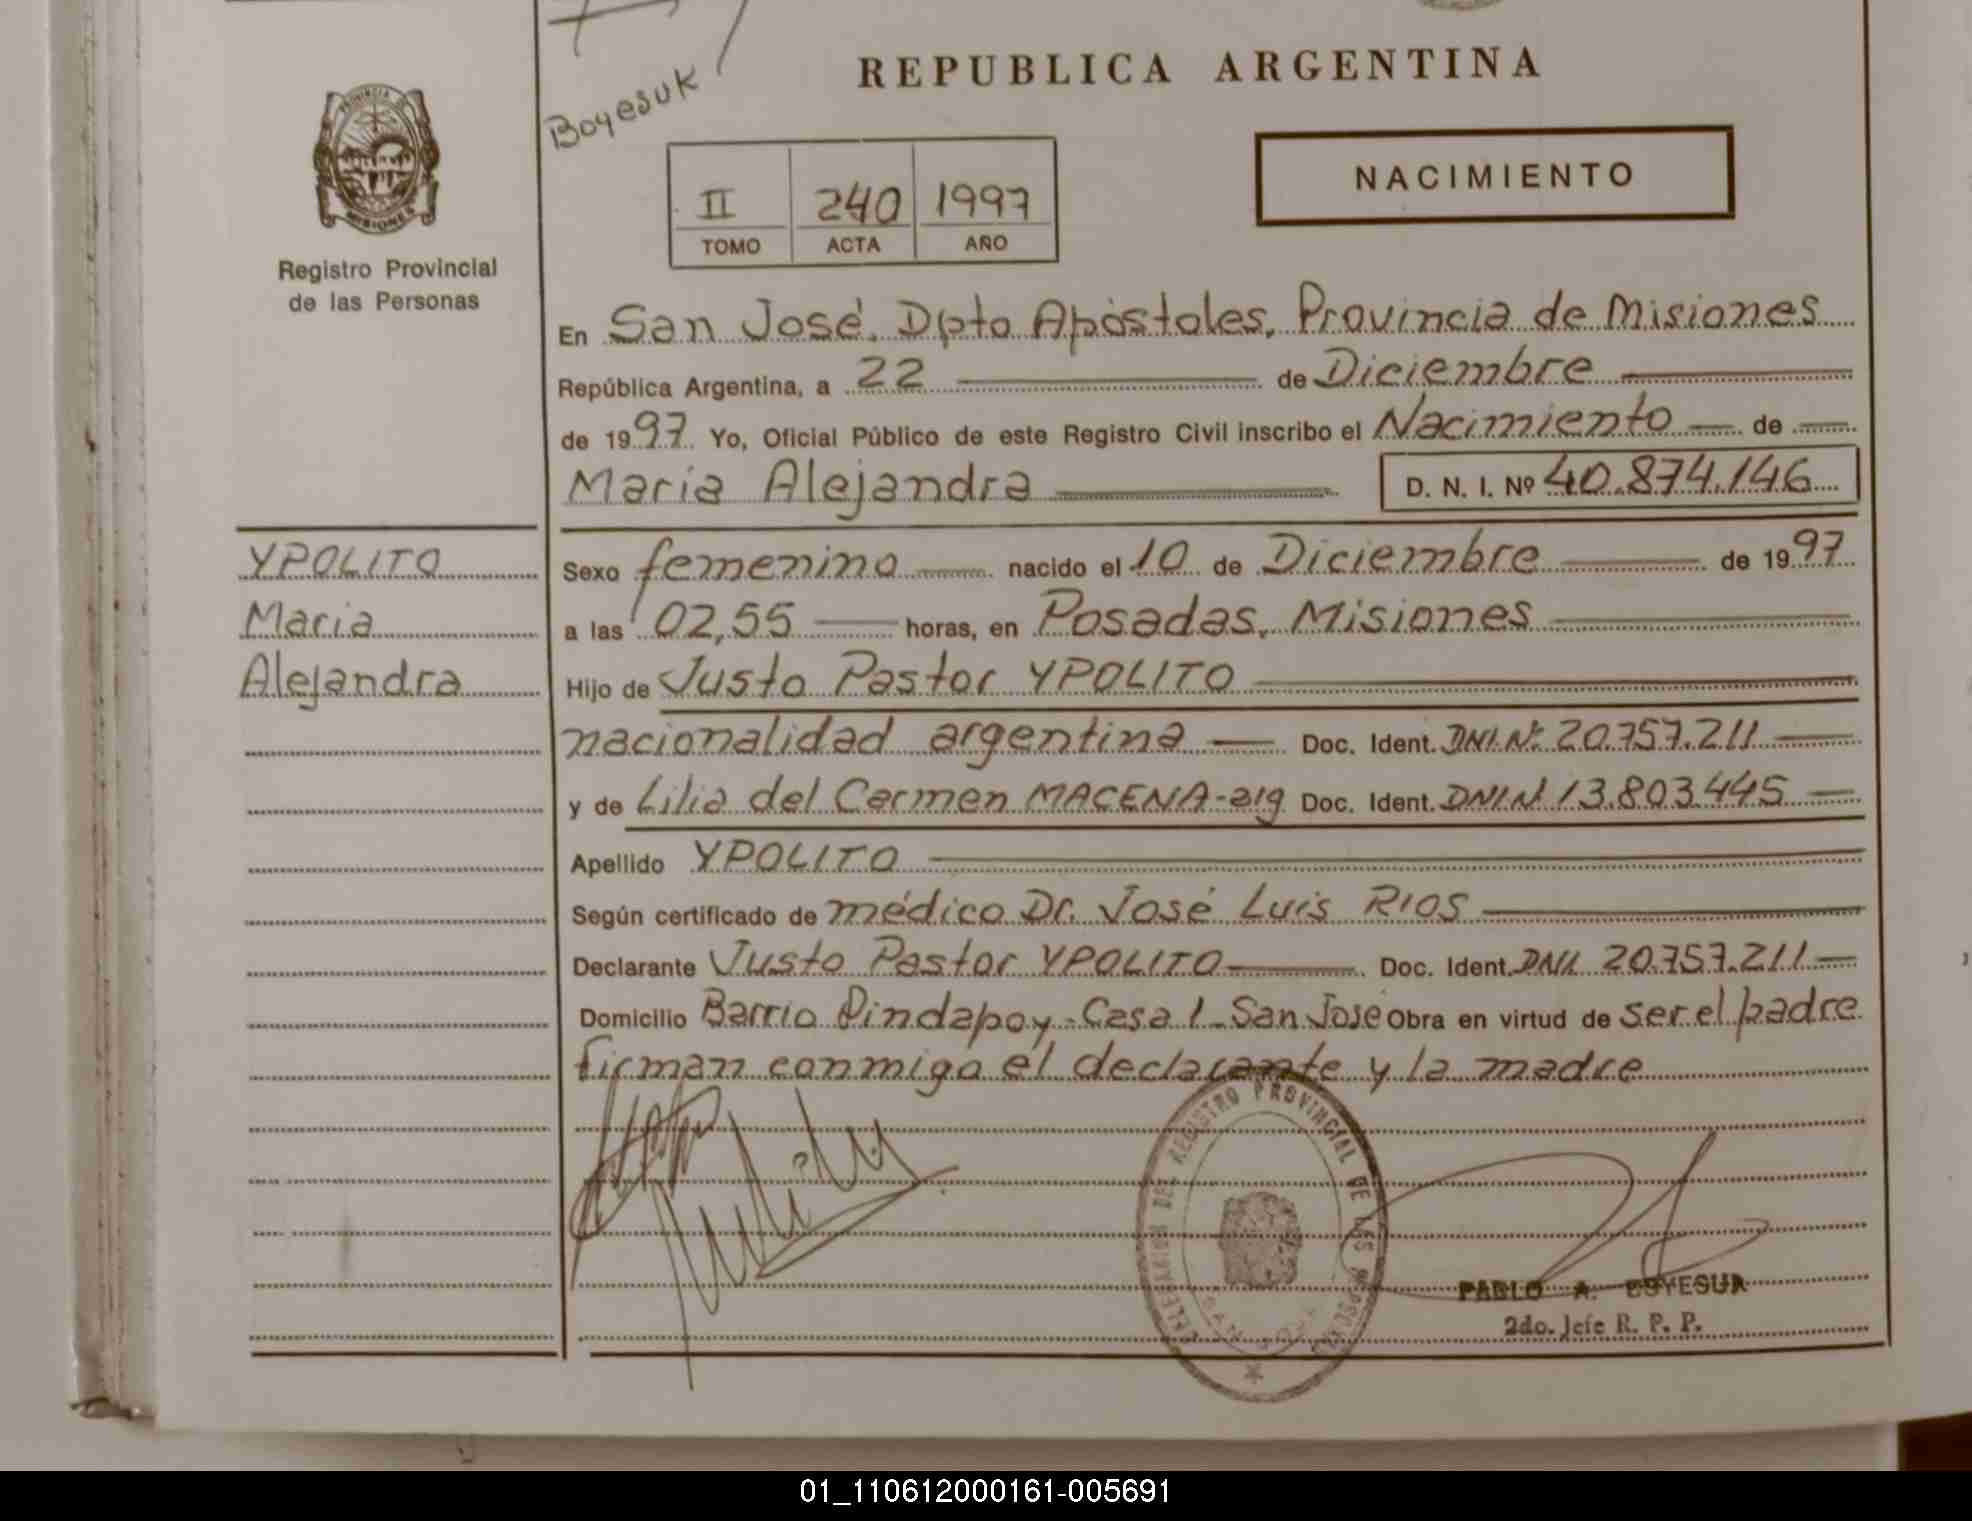 REPUBLICA ARGENTINA
Boyesuk
PROVINCIA DE
MISIONES
Registro Provincial
de las Personas
NACIMIENTO
II 240 1997
TOMO ACTA AÑO
En San José, Dpto Apóstoles, Provincia de Misiones
República Argentina, a 22 de Diciembre
de 1997 Yo, Oficial Público de este Registro Civil inscribo el Nacimiento de
Maria Alejandra D. N. I. Nº 40.874.146
YPOLITO
Maria
Alejandra
Sexo femenino nacido el 10 de Diciembre de 1997
a las 02,55 horas, en Posadas, Misiones
Hijo de Justo Pastor YPOLITO
nacionalidad argentina Doc. Ident. DNI.Nº 20.757.211
y de Lilia del Carmen MACENA-arg Doc. Ident. DNI.Nº 13.803.445
Apellido YPOLITO
Según certificado de médico Dr. José Luis RIOS
Declarante Justo Pastor YPOLITO Doc. Ident. DNI. 20.757.211
Domicilio Barrio Pindapoy-Casa 1-San José Obra en virtud de ser el padre
firman conmigo el declarante y la madre
DEL REGISTRO PROVINCIAL DE LAS
PABLO A. BOYESUK
2do. Jefe R. P. P.
01_110612000161-005691